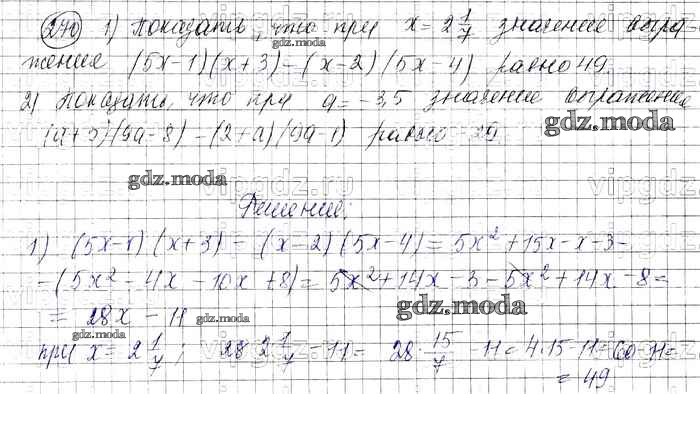 270) 1) Показать, что при x = 2 1/7 значение выра-
жение (5x-1)(x+3) - (x-2)(5x-4) равно 49.
2) Показать, что при a = -3,5 значение выражение
(9a-8) - (2+a)(9a-1) равно
gdz.moda
Решение.
1) (5x-1)(x+3) - (x-2)(5x-4) = 5x² + 15x - x - 3 -
- (5x² - 4x - 10x + 8) = 5x² + 14x - 3 - 5x² + 14x - 8 =
= 28x - 11
gdz.moda
при x = 2 1/7; 28 · 2 1/7 - 11 = 28 · 15/7 - 11 = 4·15 - 11 = 60 - 11 =
= 49